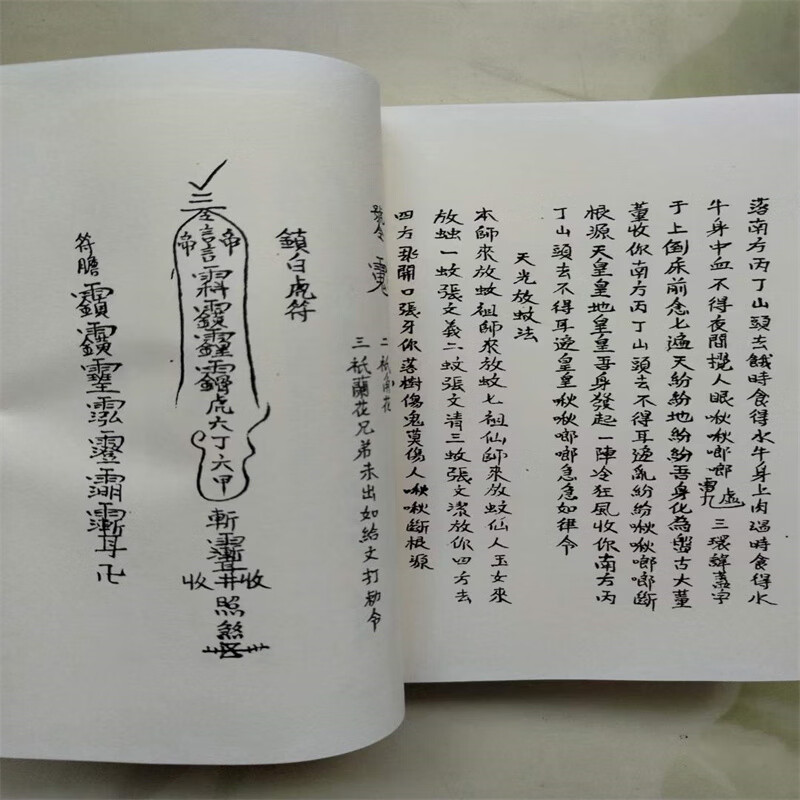 落南方丙丁山頭去餓時食得水牛身上肉渴時食得水
牛身中血不得夜間攪人眼啾啾啷啷 三環諱蓋字
于上倒床前念七遍天紛紛地紛紛吾身化為盤古大董
董收你南方丙丁山頭去不得耳邊亂紛紛啾啾啷啷斷
根源天皇皇地皇皇吾身發起一陣冷狂風收你南方丙
丁山頭去不得耳邊皇皇啾啾啷啷急急如律令
天光放蚊法
本師來放蚊祖師來放蚊七祖仙師來放蚊仙人玉女來
放蚊一蚊張文義二蚊張文清三蚊張文潔放你四方去
四方飛開口張牙你落樹傷鬼莫傷人啾啾斷根源
號令
二祇蘭花
三祇蘭花兄弟未出如給文打勅令
鎖白虎符
三
帝 帝
虎六丁六甲
斬
收井收
照煞
符膽
卍